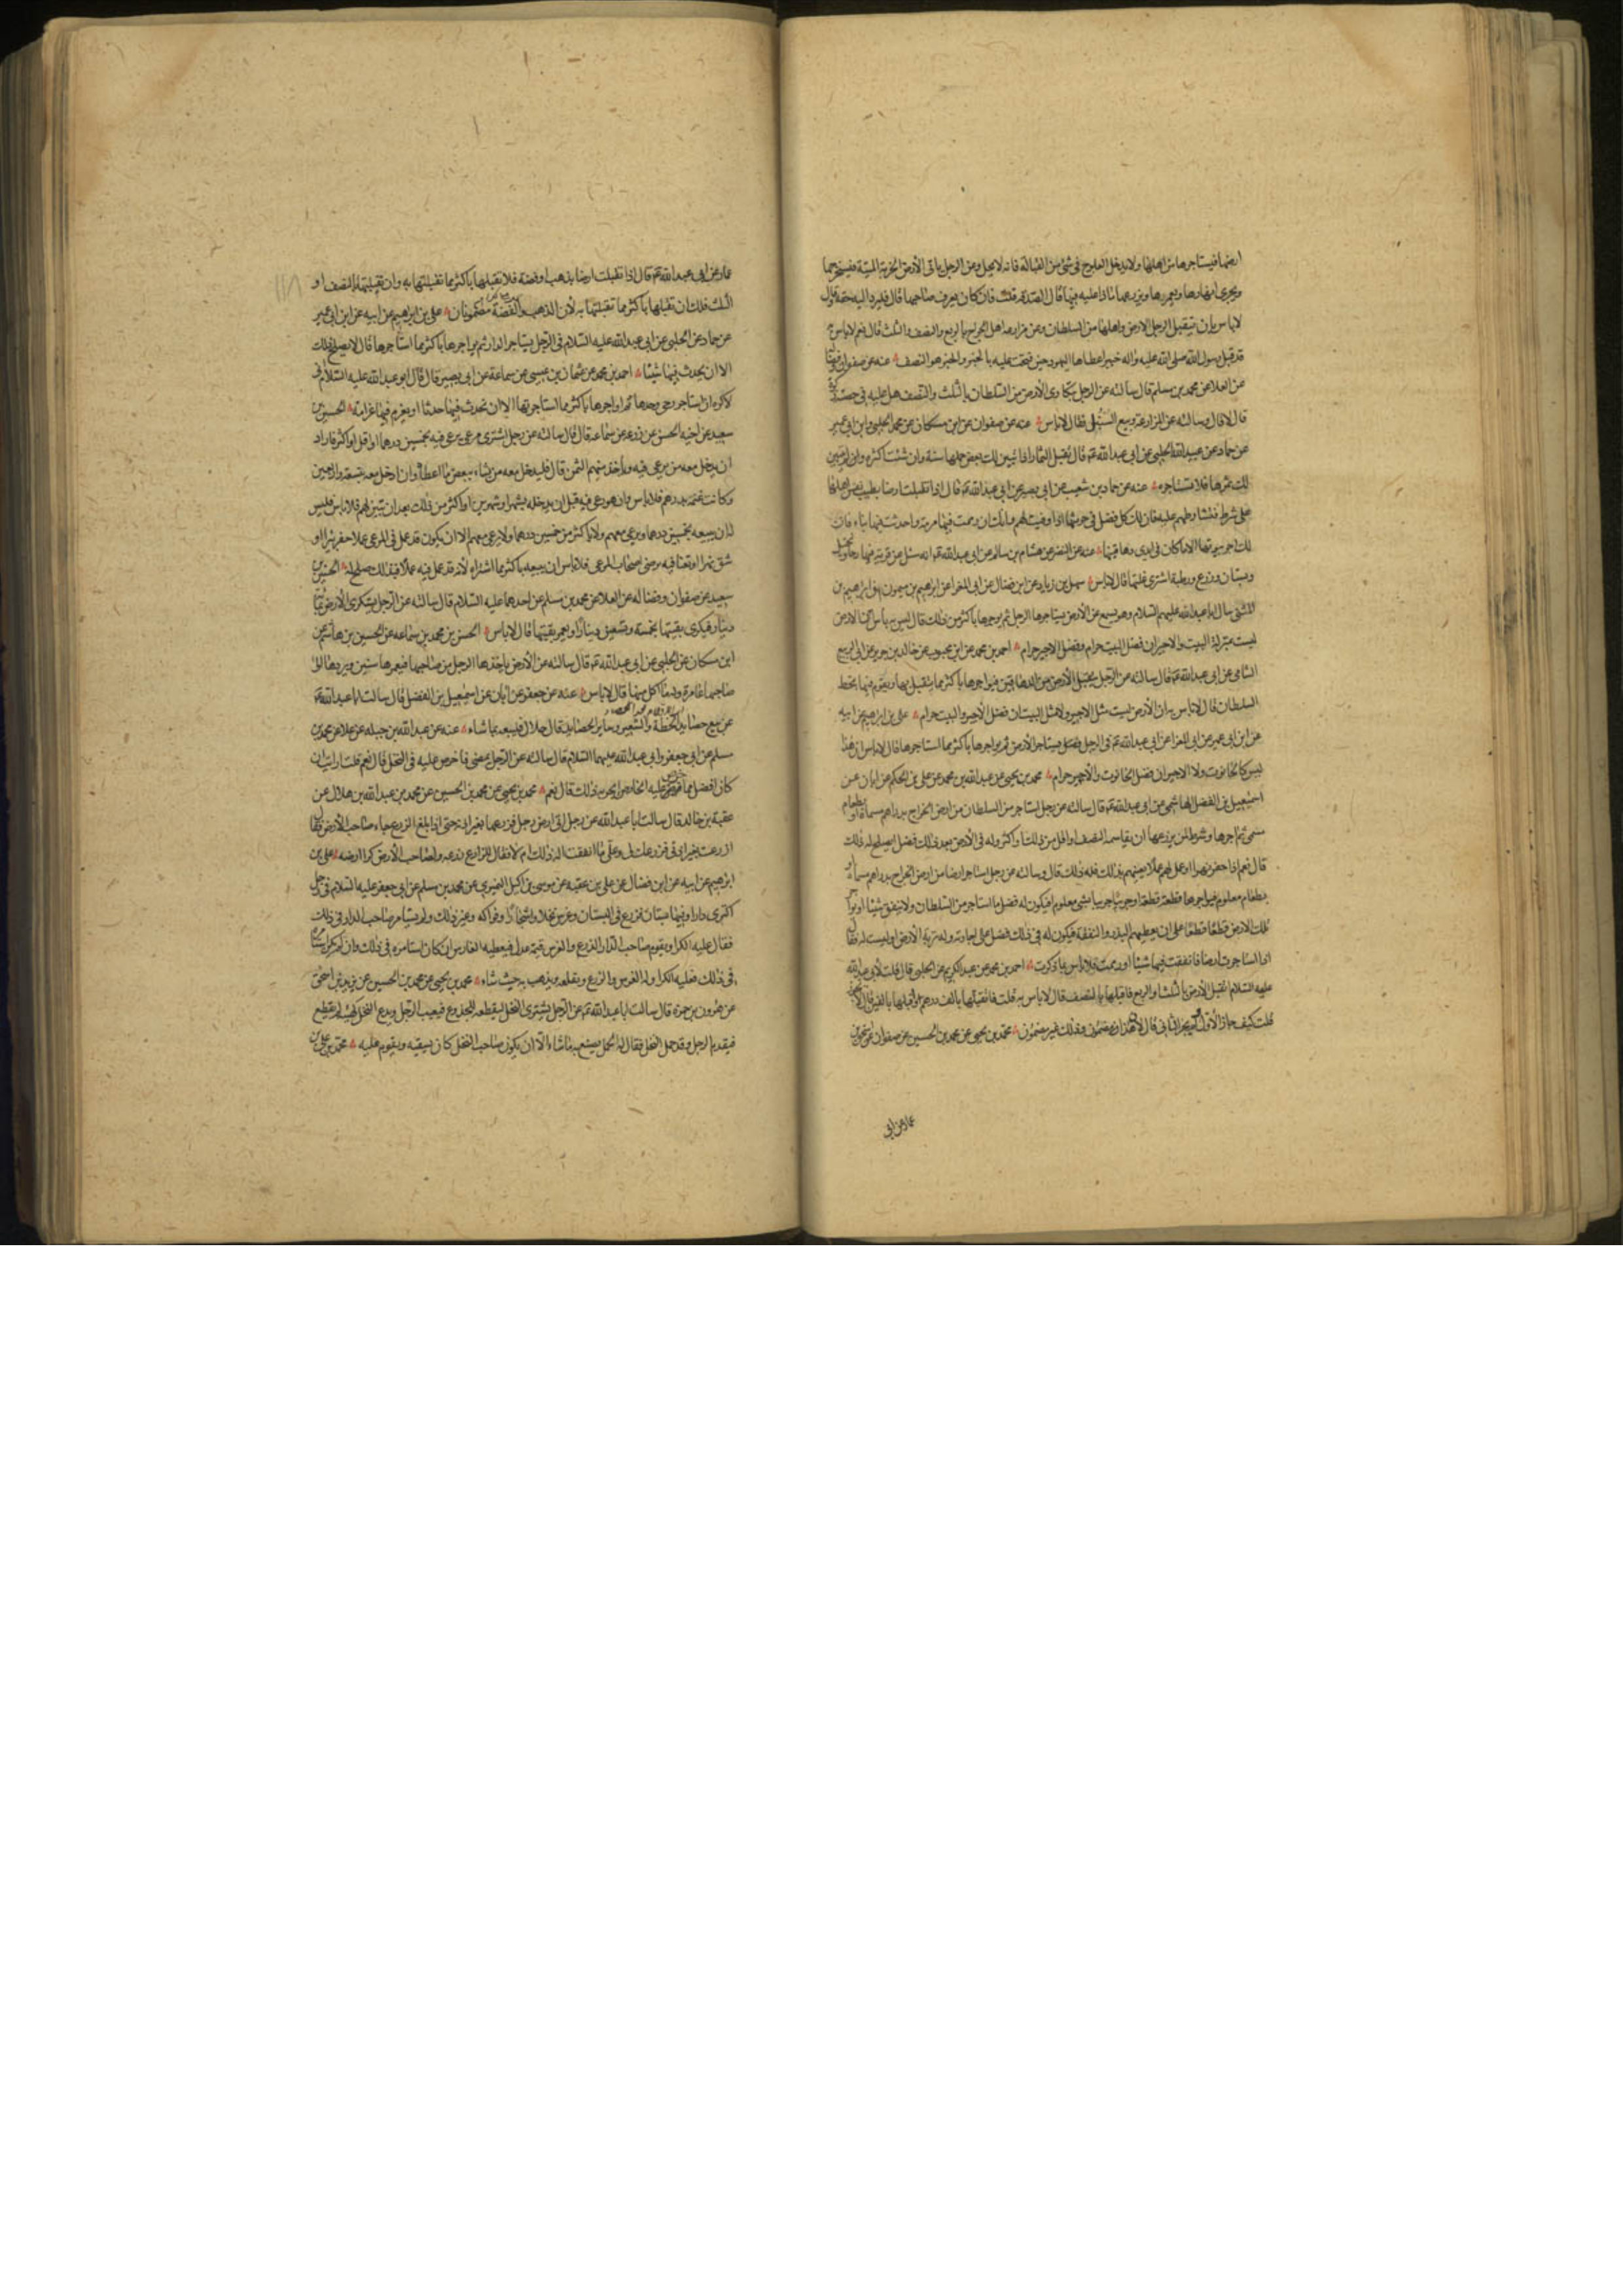 ارضها فيستاجرها من اهلها ولا يدخل العلوج في شئ من القبالة فانه لا يحل وعن الرجل ياتى الأرض الخربة الميتة فيستخرجها
ويجرى انهارها ويعمرها ويزرعها ماذا عليه فيها قال الصدقة قلت فان كان يعرف صاحبها قال فليرد اليه حقه وقال
لا باس بان يتقبل الرجل الارض واهلها من السلطان وعن مزارعة اهل الخراج بالربع والنصف والثلث قال نعم لا باس به
قد قبل رسول الله صلى الله عليه واله خيبر اعطاها اليهود حين فتحت عليه بالخبر والخبر هو النصف عنه عن صفوان وفضالة
عن العلا عن محمد بن مسلم قال سالته عن الرجل يتكارى الأرض من السلطان بالثلث والنصف هل عليه في حصته زكوة
قال لا قال وسالته عن المزارعة وبيع السنبل فقال لا باس عنه عن صفوان عن ابن مسكان عن محمد الحلبى وابن ابى عمير
عن حماد عن عبيد الله الحلبى عن ابى عبد الله ع قال تقبل الثمار اذا تبين لك بعض حملها سنة وان شئت اكثر وان لم يتبين
لك ثمرها فلا تستاجره عنه عن حماد بن شعيب عن ابى بصير عن ابى عبد الله ع قال اذا تقبلت ارضا بطيب نفس اهلها
على شرط فتشارطهم عليه فان لك كل فضل في حرثها اذا وفيت لهم وانك ان رممت فيها مرمة واحدثت فيها بناء فان
لك اجر بيوتها الا ما كان في ايدى دهاقينها عنه عن النضر عن هشام بن سالم عن ابى عبد الله ع انه سئل عن قرية فيها رحا ونخيل
وبستان وزرع ورطبة اشترى غلتها قال لا باس سهل بن زياد عن ابن فضال عن ابى المغرا عن ابرهيم بن ميمون ان ابرهيم بن
المثنى سال ابا عبد الله عليهم السلام وهو يسمع عن الأرض يستاجرها الرجل ثم يوجرها باكثر من ذلك قال ليس به بأس ان الارض
ليست بمنزلة البيت والاجير ان فضل البيت حرام وفضل الاجير حرام احمد بن محمد عن ابن محبوب عن خالد بن جرير عن ابى الربيع
الشامى عن ابى عبد الله ع قال سالته عن الرجل يتقبل الأرض من الدهاقين فيواجرها باكثر مما يتقبل بها ويقوم فيها بحظ
السلطان قال لا باس به ان الأرض ليست مثل الاجير ولا مثل البيت ان فضل الأجير والبيت حرام على بن ابرهيم عن ابيه
عن ابن ابى عمير عن ابى المغرا عن ابى عبد الله ع في الرجل يستاجر الأرض ثم يواجرها باكثر مما استاجرها قال لا باس ان هذا
ليس كالحانوت ولا الاجير ان فضل الحانوت والأجير حرام محمد بن يحيى عن عبد الله بن محمد عن على بن الحكم عن ابان عن
اسمعيل بن الفضل الهاشمى عن ابى عبد الله ع قال سالته عن رجل استاجر من السلطان من ارض الخراج بدراهم مسماة او بطعام
مسمى ثم آجرها وشرط لمن يزرعها ان يقاسمه النصف او اقل من ذلك او اكثر وله في الأرض بعد ذلك فضل ايصلح له ذلك
قال نعم اذا حفر نهرا او عمل لهم عملا يعينهم بذلك فله ذلك قال وسالته عن رجل استاجر ارضا من ارض الخراج بدراهم مسماة او
بطعام معلوم فيواجرها قطعة قطعة او جريبا جريبا بشئ معلوم فيكون له فضل ما استاجر من السلطان ولا ينفق شيئا او يواجر
تلك الارض قطعا قطعا على ان يعطيهم البذر والنفقة فيكون له في ذلك فضل على اجارته وله تربة الأرض او ليست له فقال
اذا استاجرت ارضا فانفقت فيها شيئا او رممت فلا باس بما ذكرت احمد بن محمد عن عبد الكريم عن الحلبى قال قلت لأبى عبد الله
عليه السلام اتقبل الأرض بالثلث او الربع فاقبلها بالنصف قال لا باس به قلت فاتقبلها بالف درهم واقبلها بالفين قال لا يجوز
قلت كيف جاز الأول ولم يجز الثانى قال لأن هذا مضمون وذلك غير مضمون محمد بن يحيى عن محمد بن الحسين عن صفوان عن اسحق بن
عمار عن ابى
عمار عن ابى عبد الله ع قال اذا تقبلت ارضا بذهب او فضة فلا تقبلها باكثر مما تقبلتها به وان تقبلتها بالنصف او
الثلث فلك ان تقبلها باكثر مما تقبلتها به لأن الذهب والفضة مضمونان على بن ابراهيم عن ابيه عن ابن ابى عمير
عن حماد عن الحلبى عن ابى عبد الله عليه السلام في الرجل يستاجر الدار ثم يواجرها باكثر مما استاجرها قال لا يصلح ذلك
الا ان يحدث فيها شيئا احمد بن محمد عن عثمان بن عيسى عن سماعة عن ابى بصير قال قال ابو عبد الله عليه السلام انى
لاكره ان استاجر رحى وحدها ثم اواجرها باكثر مما استاجرتها الا ان تحدث فيها حدثا او يغرم فيها غرامة الحسين بن
سعيد عن اخيه الحسن عن زرعة عن سماعة قال قال سالته عن رجل اشترى مرعى يرعى فيه بخمسين درهما او اقل او اكثر فاراد
ان يدخل معه من يرعى فيه وياخذ منهم الثمن قال فليدخل معه من يشاء ببعض ما اعطا وان ادخل معه بتسعة واربعين
وكانت غنمه بدرهم فلا باس وان هو رعى فيه قبل ان يدخله بشهر او شهرين او اكثر من ذلك بعد ان يبين لهم فلا باس فليس
له ان يبيعه بخمسين درهما ويرعى معهم ولا باكثر من خمسين درهما ولا يرعى معهم الا ان يكون قد عمل في المرعى عملا حفر بئرا او
شق نهرا او تعنا فيه برضى اصحاب المرعى فلا باس ان يبيعه باكثر مما اشتراه لأنه قد عمل فيه عملا فبذلك صلح له الحسين بن
سعيد عن صفوان وفضالة عن العلا عن محمد بن مسلم عن احدهما عليه السلام قال سالته عن الرجل يستكرى الأرض بمائة
دينار فيكرى بقيتها بخمسة وتسعين دينارا ويعمر بقيتها قال لا باس الحسن بن محمد بن سماعه عن الحسين بن هاشم عن
ابن مسكان عن الحلبى عن ابى عبد الله ع قال سالته عن الأرض ياخذها الرجل من صاحبها فيعمرها سنتين ويردها الى
صاحبها عامرة وله ما اكل منها قال لا باس عنه عن جعفر عن ابان عن اسمعيل بن الفضل قال سالت ابا عبد الله ع
عن بيع حصايد الحنطة والشعير وساير الحصايد قال حلال فليبعه بما شاء عنه عن عبد الله بن جبله عن علا عن محمد بن
مسلم عن ابى جعفر وابى عبد الله عليهما السلام قال سالته عن الرجل يمضى ما خرص عليه في النخل قال نعم قلت ارايت ان
كان افضل مما خرص عليه الخارص ايجزيه ذلك قال نعم محمد بن يحيى عن محمد بن الحسين عن محمد بن عبد الله بن هلال عن
عقبة بن خالد قال سالت ابا عبد الله عن رجل اتى ارض رجل فزرعها بغير اذنه حتى اذا بلغ الزرع جاء صاحب الأرض فقال
ازرعت بغير اذنى فزرعك لى وعلى ما انفقت اله ذلك ام لا فقال للزارع زرعه ولصاحب الأرض كرا ارضه على بن
ابرهيم عن ابيه عن ابن فضال عن على بن عقبه عن موسى بن اكيل النميرى عن محمد بن مسلم عن ابى جعفر عليه السلام في رجل
اكترى دارا وفيها بستان فزرع في البستان وغرس نخلا واشجارا وفواكه وغير ذلك ولم يستامر صاحب الدار في ذلك
فقال عليه الكرا ويقوم صاحب الدار الزرع والغرس قيمة عدل فيعطيه الغارس ان كان استامره في ذلك وان لم يكن استامره
في ذلك فعليه الكرا وله الغرس والزرع ويقلعه ويذهب به حيث شاء محمد بن يحيى عن محمد بن الحسين عن يزيد بن اسحق
عن هرون بن حمزة قال سالت ابا عبد الله ع عن الرجل يشترى النخل ليقطعه للجذوع فيغيب الرجل ويدع النخل كهيئته لم يقطع
فيقدم الرجل وقد حمل النخل فقال له الحمل يصنع به ما شاء الا ان يكون صاحب النخل كان يسقيه ويقوم عليه محمد بن على بن